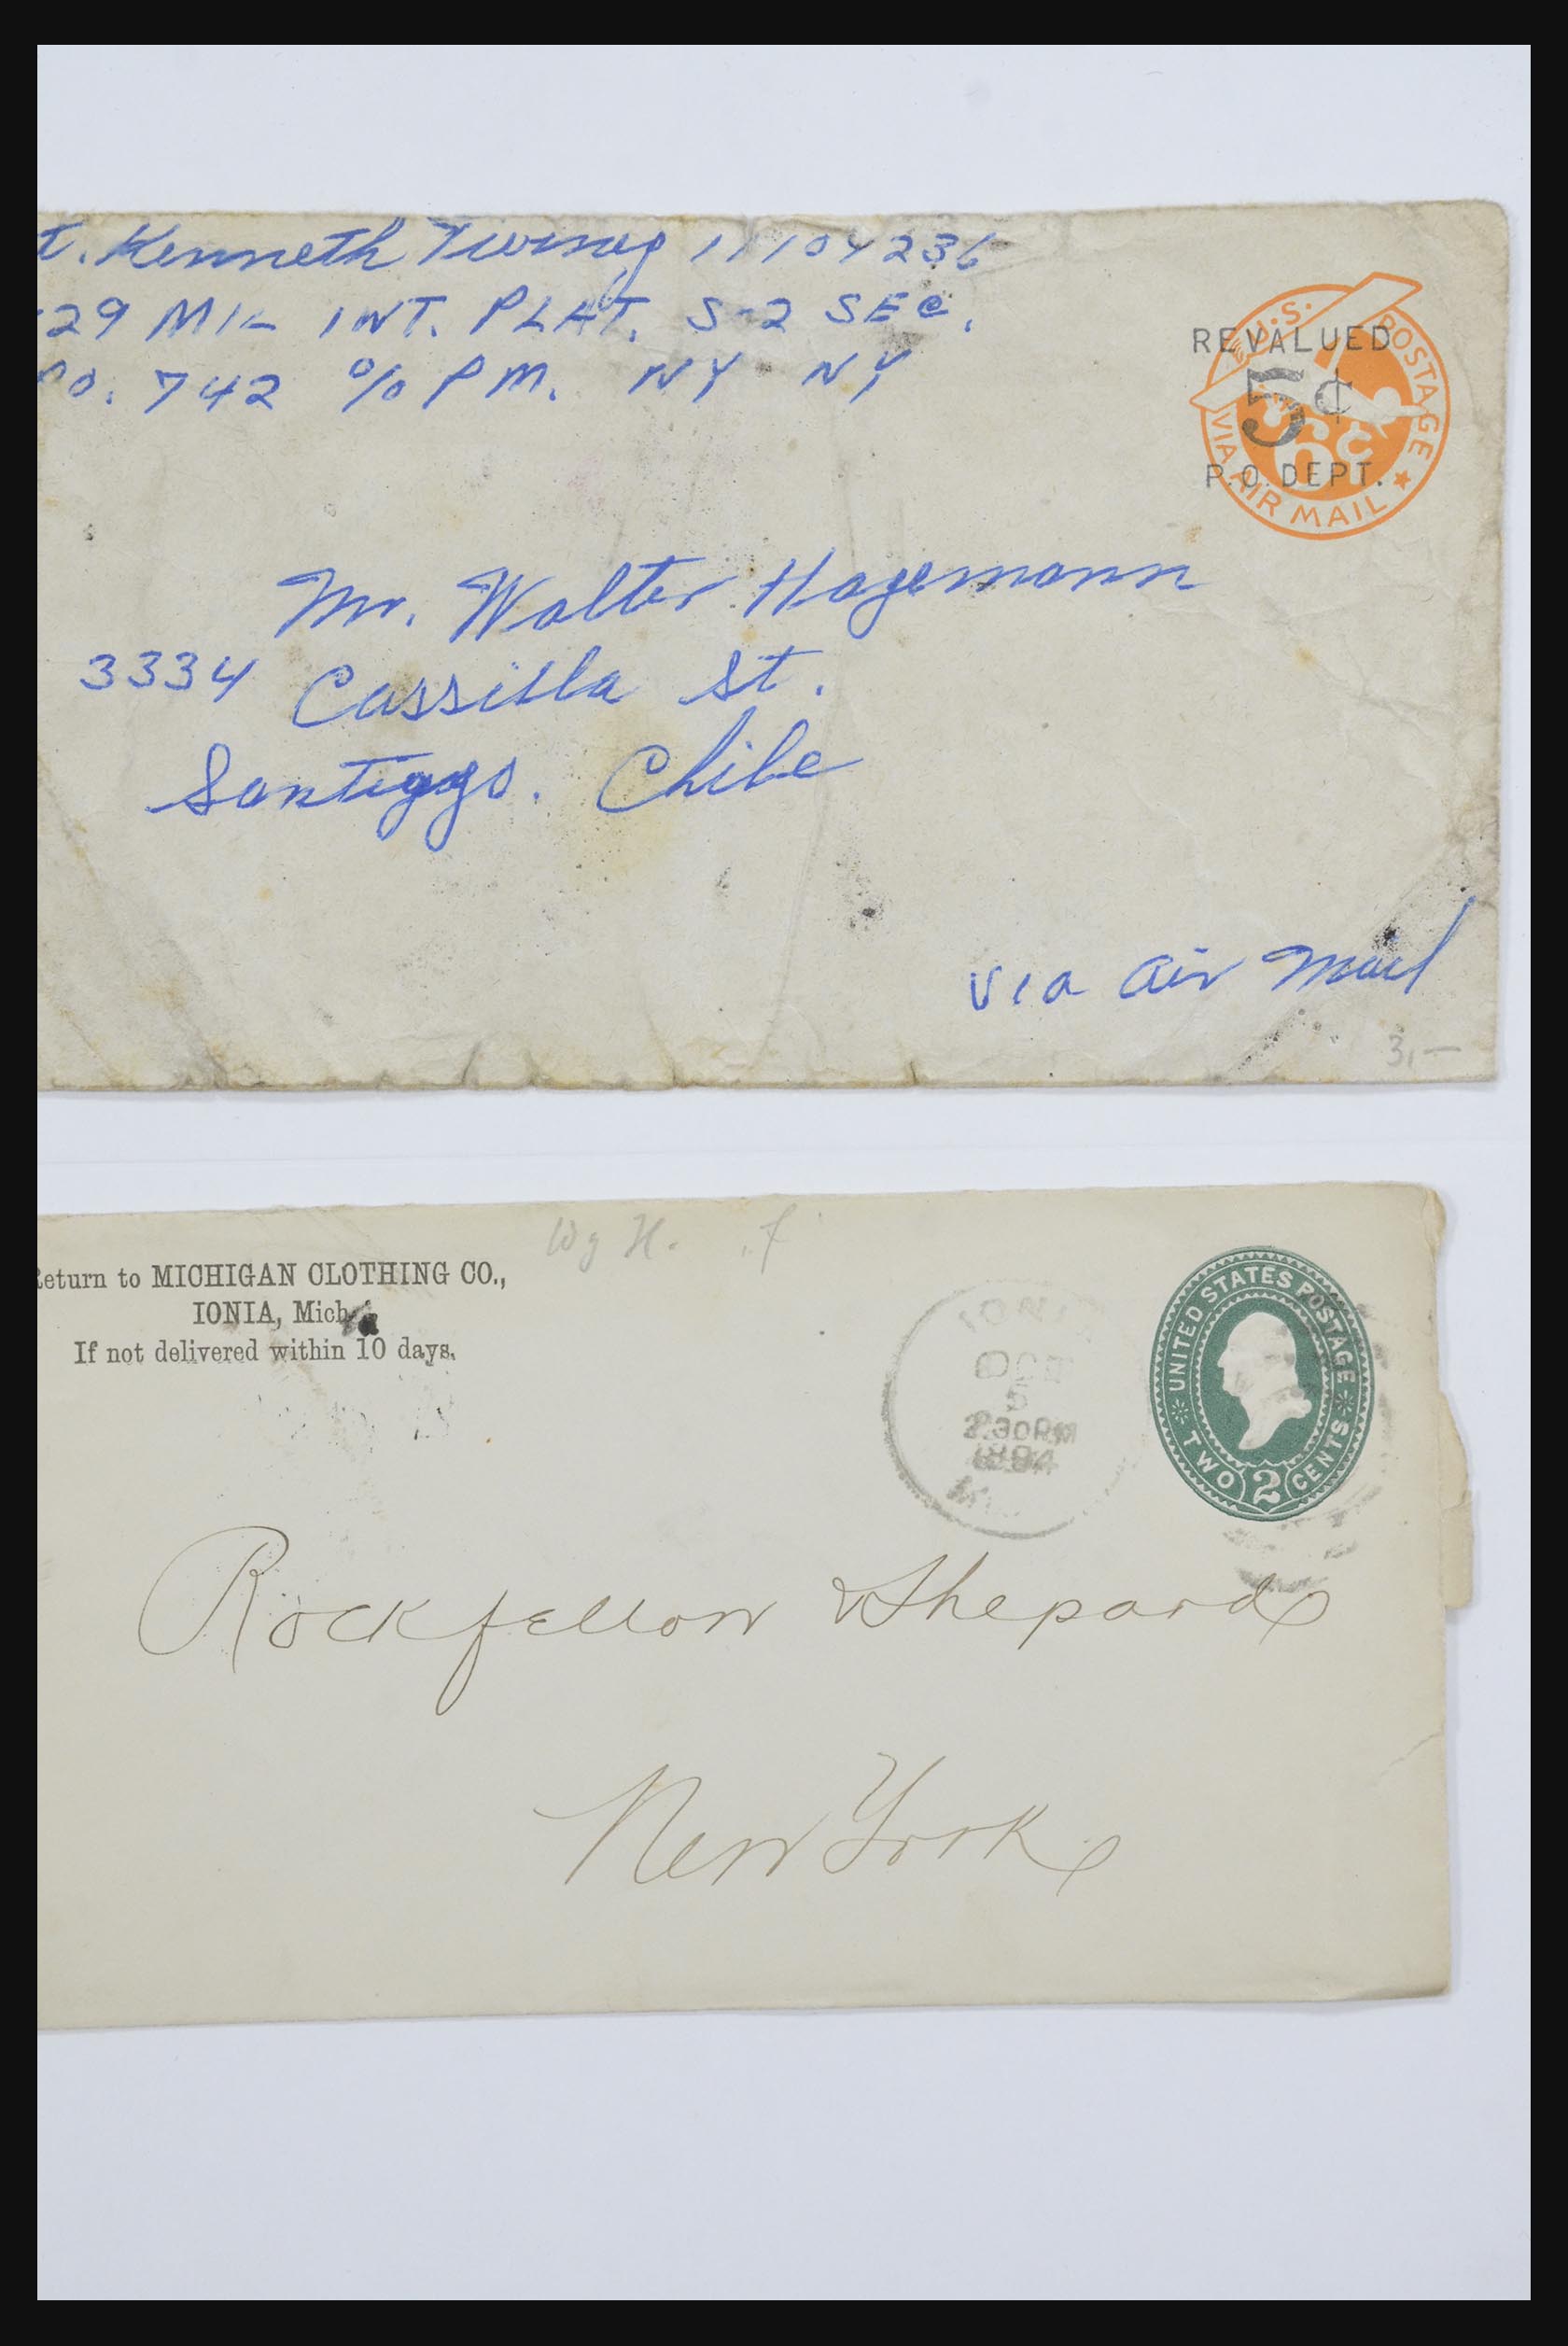 t. Kenneth Twining 11104236
29 MIL INT. PLAT. S-2 SEC.
PO. 742 % P M. NY NY
U.S. POSTAGE
REVALUED
5¢
6¢
P.O. DEPT.
VIA AIR MAIL
Mr. Walter Hagemann
3334 Cassilla St.
Santiago. Chile
via Air Mail
3,—
Return to MICHIGAN CLOTHING CO.,
IONIA, Mich.
If not delivered within 10 days.
IONIA
OCT
5
2.30PM
1894
UNITED STATES POSTAGE
TWO 2 CENTS
Rockfellow & Shepard
New York